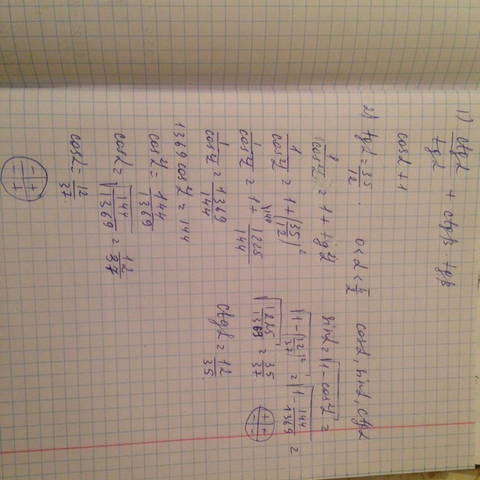 1) ctgα/tgα + ctgβ · tgβ
cosα + 1
2) tgα = 35/12 . 0 < α < π/2 cosα, sinα, ctgα
1/cos²α = 1 + tg²α
1/cos²α = 1 + (35/12)²
1/cos²α = 1 + 1225/144
1/cos²α = 1369/144
1369 cos²α = 144
cos²α = 144/1369
cosα = √144/1369 = 12/37
cosα = 12/37
sinα = √1 - cos²α =
√1 - (12/37)² = √1 - 144/1369 =
√1225/1369 = 35/37
ctgα = 12/35